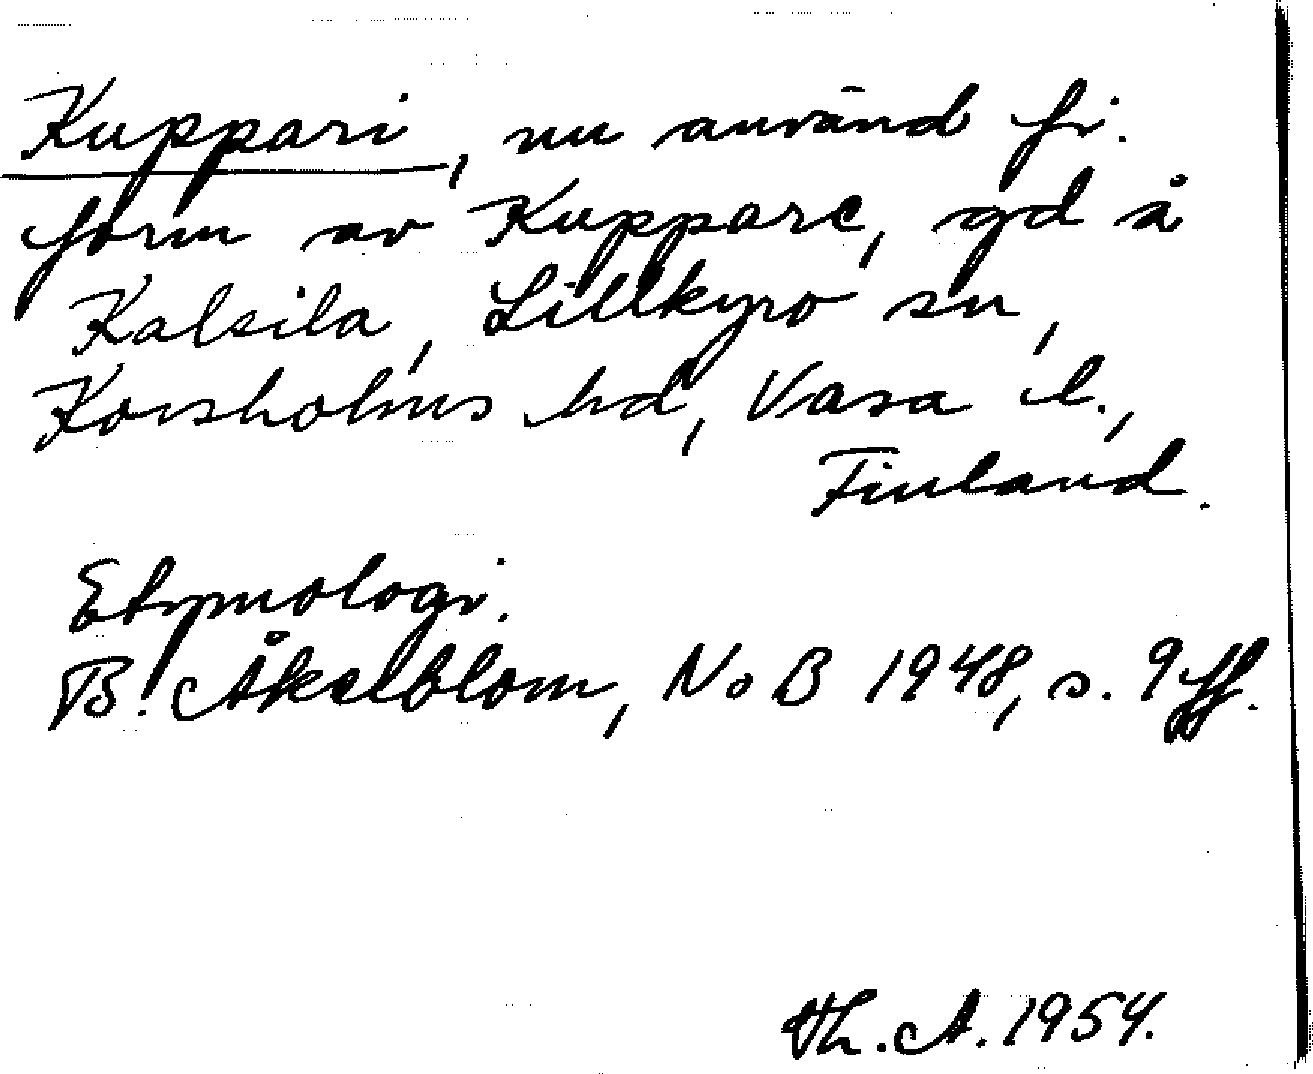 Kuppari, nu använd fi.
form av Kuppare, gd å
Kalsila, Lillkyro sn,
Korsholms hd, Vasa l.,
Finland.
Etymologi.
B. Åkerblom, NoB 1948, s. 9 ff.
Th. A. 1954.